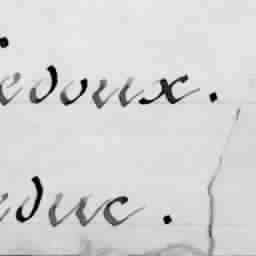 edoux.
educ.